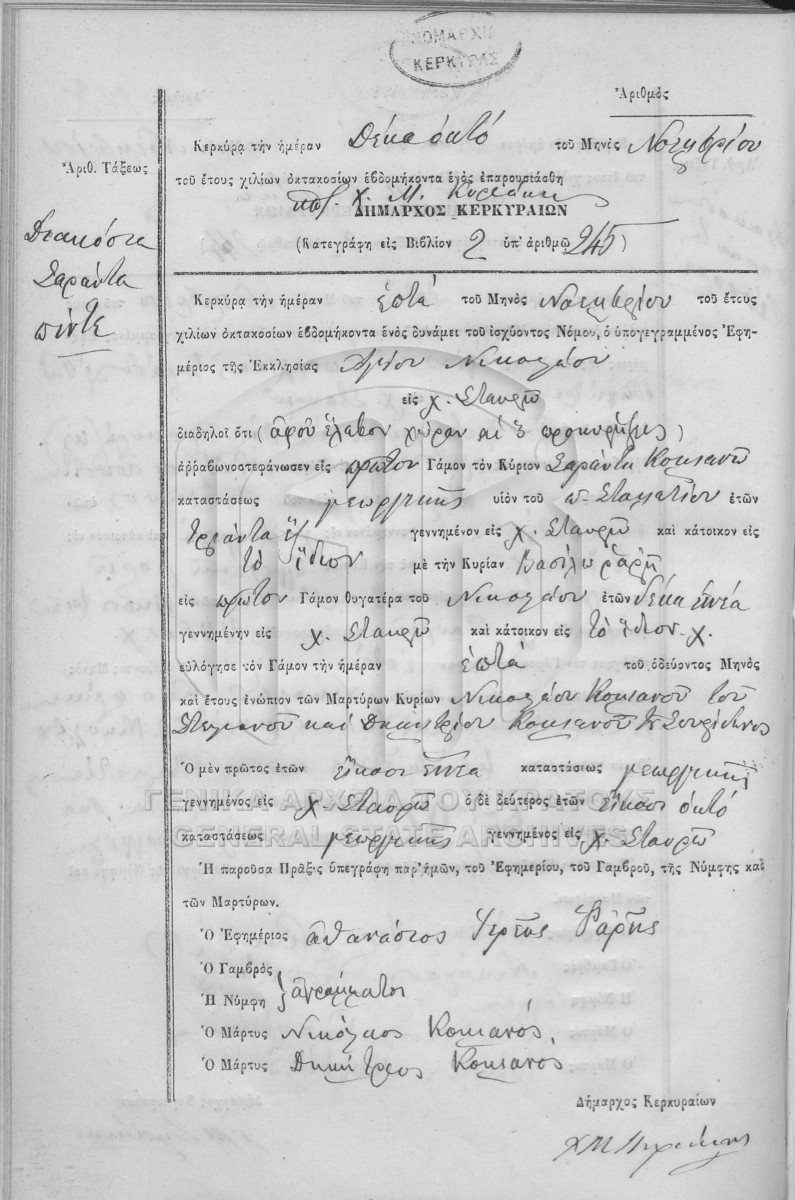 ΝΟΜΑΡΧΙ
ΚΕΡΚΥΡΑΣ
Ἀριθμὸς
Κερκύρᾳ τὴν ἡμέραν Δέκα ὀκτό τοῦ Μηνὸς Νοεμβρίου
Ἀριθ. Τάξεως
τοῦ ἔτους χιλίων ὀκτακοσίων ἑβδομήκοντα ἑνὸς ἐπαρουσιάσθη
χ. Μ.
ΔΗΜΑΡΧΟΣ ΚΕΡΚΥΡΑΙΩΝ
(Κατεγράφη εἰς Βιβλίον 2 ὑπ' ἀριθμῷ 245)
Διακόσια
Σαράντα
πέντε
Κερκύρᾳ τὴν ἡμέραν ἑπτά τοῦ Μηνὸς Νοεμβρίου τοῦ ἔτους
χιλίων ὀκτακοσίων ἑβδομήκοντα ἑνὸς δυνάμει τοῦ ἰσχύοντος Νόμου, ὁ ὑπογεγραμμένος Ἐφη-
μέριος τῆς Ἐκκλησίας Ἁγίου Νικολάου
εἰς χ. Σταυρῷ
διαδηλοῖ ὅτι (ἀφοῦ ἔλαβον χώραν αἱ 3 προκηρύξεις)
ἀῤῥαβωνοστεφάνωσεν εἰς πρῶτον Γάμον τὸν Κύριον Σαράντη Κοκιανὸ
καταστάσεως γεωργικῆς υἱὸν τοῦ π. Σταματίου ἐτῶν
τριάντα ἕξ γεννημένον εἰς χ. Σταυρῷ καὶ κάτοικον εἰς
τὸ ἴδιον μὲ τὴν Κυρίαν Βασίλω Φαρῆ
εἰς πρῶτον Γάμον θυγατέρα τοῦ Νικολάου ἐτῶν δέκα ἐννέα
γεννημένην εἰς χ. Σταυρῷ καὶ κάτοικον εἰς τὸ ἴδιον χ.
εὐλόγησε τὸν Γάμον τὴν ἡμέραν ἑπτά τοῦ ὁδεύοντος Μηνὸς
καὶ ἔτους ἐνώπιον τῶν Μαρτύρων Κυρίων Νικολάου Κοκιανοῦ τοῦ
Στεφανοῦ καὶ Δημητρίου Κοκιανοῦ Σπυρίδωνος
Ὁ μὲν πρῶτος ἐτῶν εἴκοσι ἐννέα καταστάσεως γεωργικῆς
γεννημένος εἰς χ. Σταυρῷ ὁ δὲ δεύτερος ἐτῶν εἴκοσι ὀκτό
καταστάσεως γεωργικῆς γεννημένος εἰς χ. Σταυρῷ
ΓΕΝΙΚΑ ΑΡΧΕΙΑ ΤΟΥ ΚΡΑΤΟΥΣ
GENERAL STATE ARCHIVES
Ἡ παροῦσα Πρᾶξις ὑπεγράφη παρ' ἡμῶν, τοῦ Ἐφημερίου, τοῦ Γαμβροῦ, τῆς Νύμφης καὶ
τῶν Μαρτύρων.
Ὁ Ἐφημέριος ἀθανάσιος Ἱερεὺς Φαρῆς
Ὁ Γαμβρὸς
Ἡ Νύμφη } ἀγράμματοι
Ὁ Μάρτυς Νικόλαος Κοκιανός,
Ὁ Μάρτυς Δημήτριος Κοκιανος
Δήμαρχος Κερκυραίων